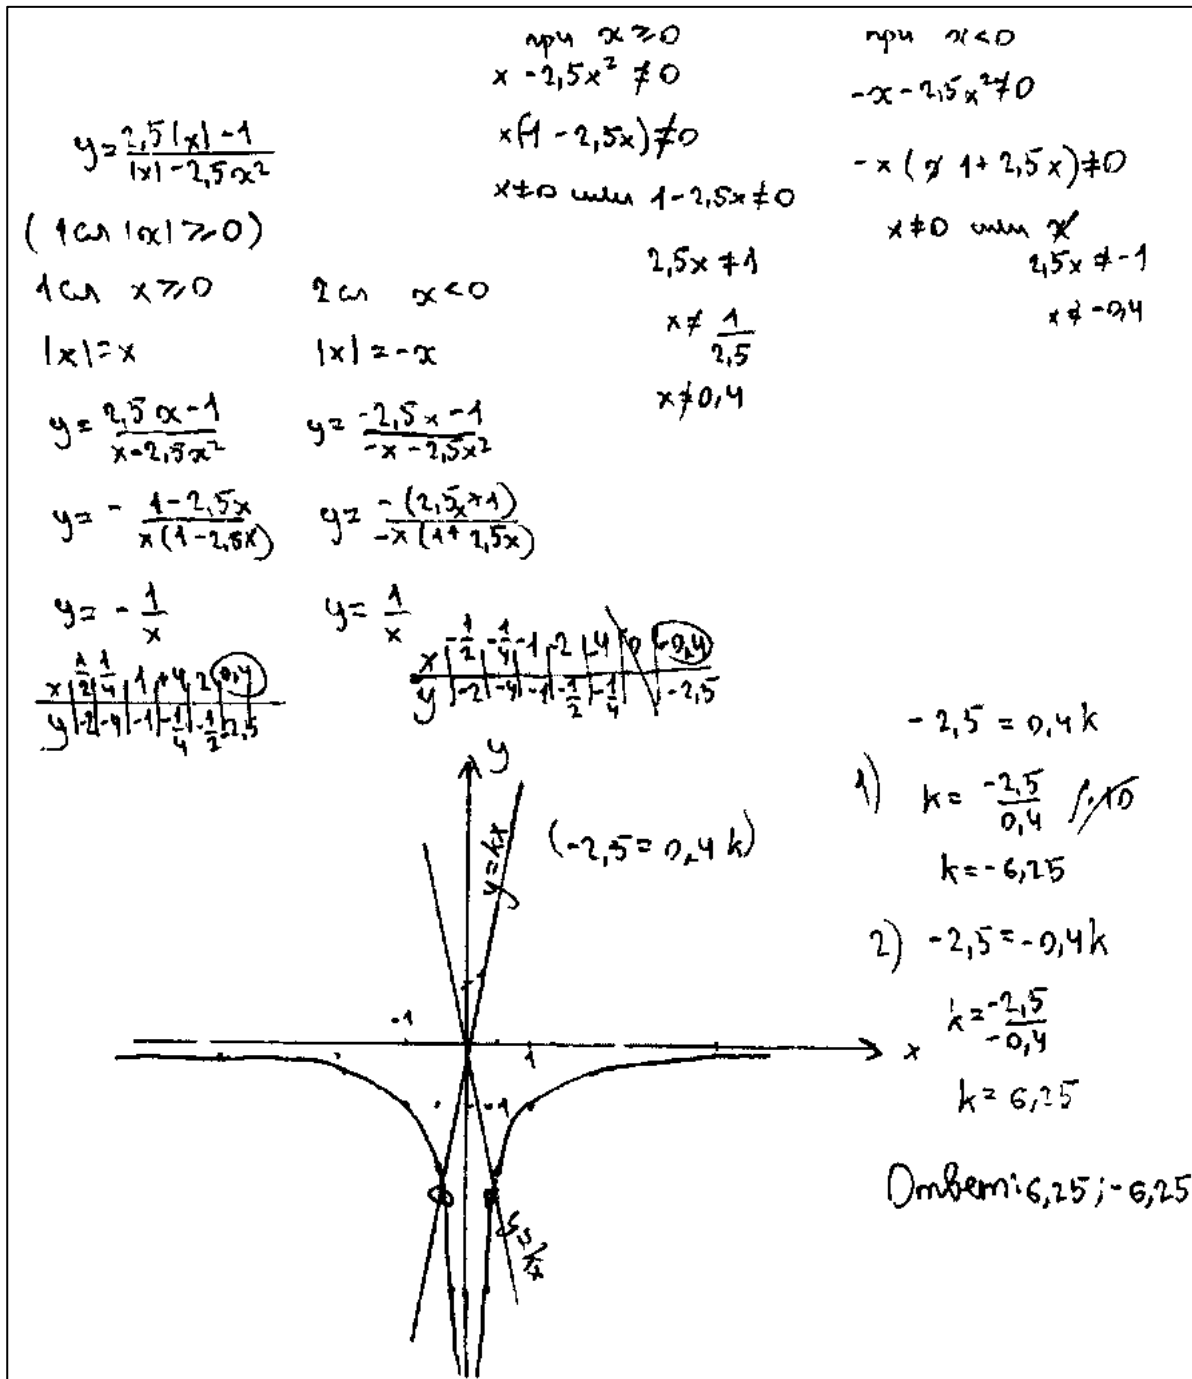 y = \frac{2,5|x| - 1}{|x| - 2,5x²}
(1 сл |x| ⩾ 0)
1 сл x ⩾ 0
|x| = x
y = \frac{2,5x - 1}{x - 2,5x²}
y = - \frac{1 - 2,5x}{x(1 - 2,5x)}
y = - \frac{1}{x}
x | \frac{1}{2} | \frac{1}{4} | 1 | 4 | 2 | 0,4
y | -2 | -4 | -1 | -\frac{1}{4} | -\frac{1}{2} | -2,5
2 сл x < 0
|x| = -x
y = \frac{-2,5x - 1}{-x - 2,5x²}
y = \frac{-(2,5x + 1)}{-x(1 + 2,5x)}
y = \frac{1}{x}
x | -\frac{1}{2} | -\frac{1}{4} | -1 | -2 | -4 | 0 | -0,4
y | -2 | -4 | -1 | -\frac{1}{2} | -\frac{1}{4} | | -2,5
при x ⩾ 0
x - 2,5x² ≠ 0
x(1 - 2,5x) ≠ 0
x ≠ 0 или 1 - 2,5x ≠ 0
2,5x ≠ 1
x ≠ \frac{1}{2,5}
x ≠ 0,4
при x < 0
-x - 2,5x² ≠ 0
-x(1 + 2,5x) ≠ 0
x ≠ 0 или
2,5x ≠ -1
x ≠ -0,4
y
y = kx
(-2,5 = 0,4k)
-1
1
x
-1
-2,5 = 0,4k
1) k = \frac{-2,5}{0,4}
k = -6,25
2) -2,5 = -0,4k
k = \frac{-2,5}{-0,4}
k = 6,25
Ответ: 6,25; -6,25